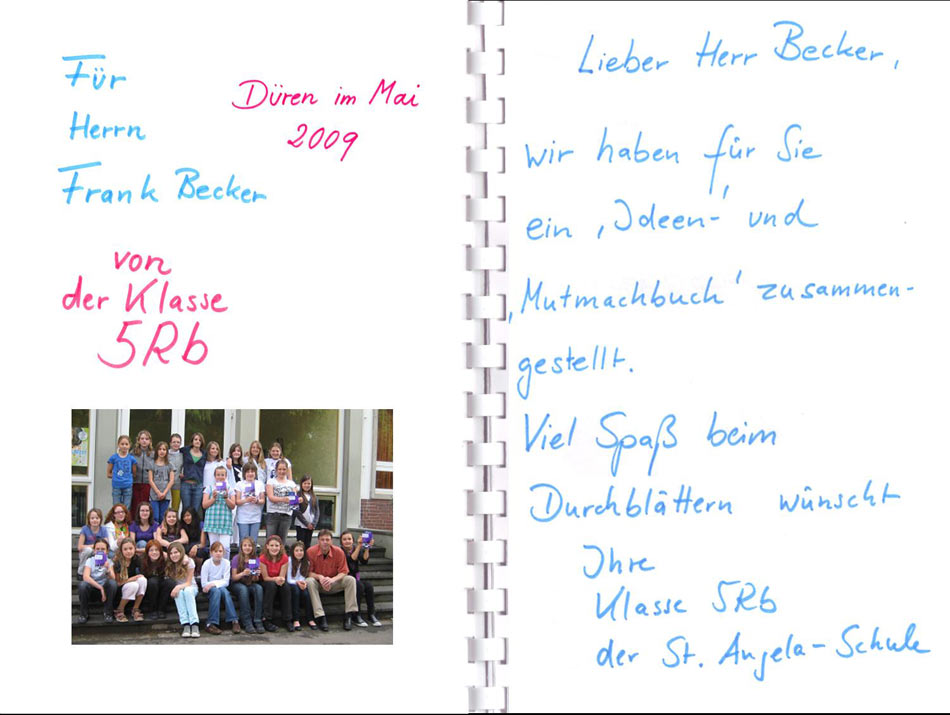 Für
Herrn
Frank Becker
Düren im Mai
2009
von
der Klasse
5Rb
Lieber Herr Becker,
wir haben für Sie
ein ‚Ideen-' und
‚Mutmachbuch' zusammen-
gestellt.
Viel Spaß beim
Durchblättern wünscht
Ihre
Klasse 5Rb
der St. Angela-Schule